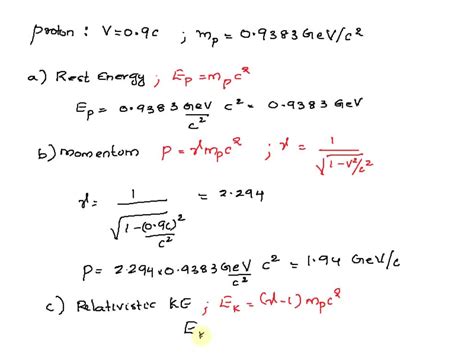 proton : V=0.9c ; mp = 0.9383 GeV/c²
a) Rest Energy ; Ep = mpc²
Ep = 0.9383 GeV/c² c² = 0.9383 GeV
b) momentom P = γmpc² ; γ = 1/√(1-v²/c²)
γ = 1/√(1-(0.9c)²/c²) = 2.294
P = 2.294 x 0.9383 GeV/c² c² = 1.94 GeV/c
c) Relativistic KE ; EK = (γ-1) mpc²
EK